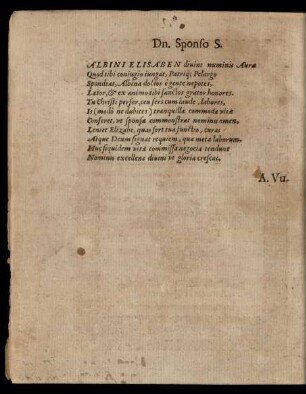 Dn. Sponſo S.
ALBINI ELISABEN divino numinis Aura
Quod tibi coniugio iungat, Patriq; Pelargo
Spondeat, Albina dotius è gente nepotes.
Lætor, & ex animo tibi ſanctos grator honores.
Tu Chriſti perfer, ceu fers cum laude, labores,
Is (modò ne dubites) tranquillæ commoda vitæ
Conferet, ut ſponſa commonſtrat nominis omen.
Leniet Elizabe, quas fert tua functio, curas
Atque Deum ſignat requiem, quæ meta laborum.
Huc ſiquidem vitæ commiſſa negocia tendunt
Numinis excellens divini ut gloria creſcat.
A. Vu.